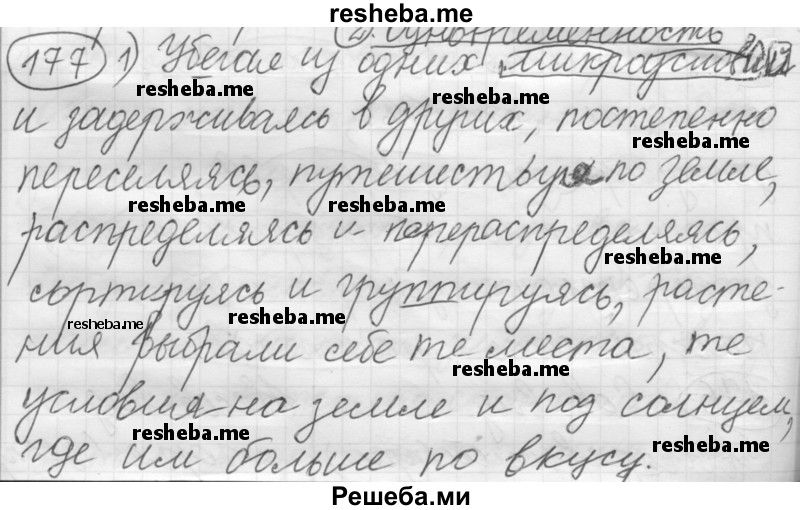 resheba.me
2. одновременность
177 1) Убегая из одних микроусловий
resheba.me
resheba.me
и задерживаясь в других, постепенно
resheba.me
переселяясь, путешествуя по земле,
resheba.me
resheba.me
распределяясь и перераспределяясь,
resheba.me
сортируясь и группируясь, расте-
resheba.me
resheba.me
ния выбрали себе те места, те
resheba.me
условия на земле и под солнцем,
resheba.me
resheba.me
где им больше по вкусу.
Решеба.ми